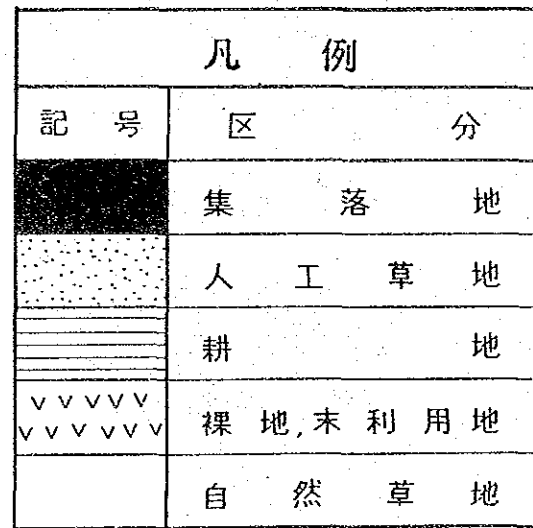 凡例
記号 区分
集落地
人工草地
耕地
裸地,末利用地
自然草地